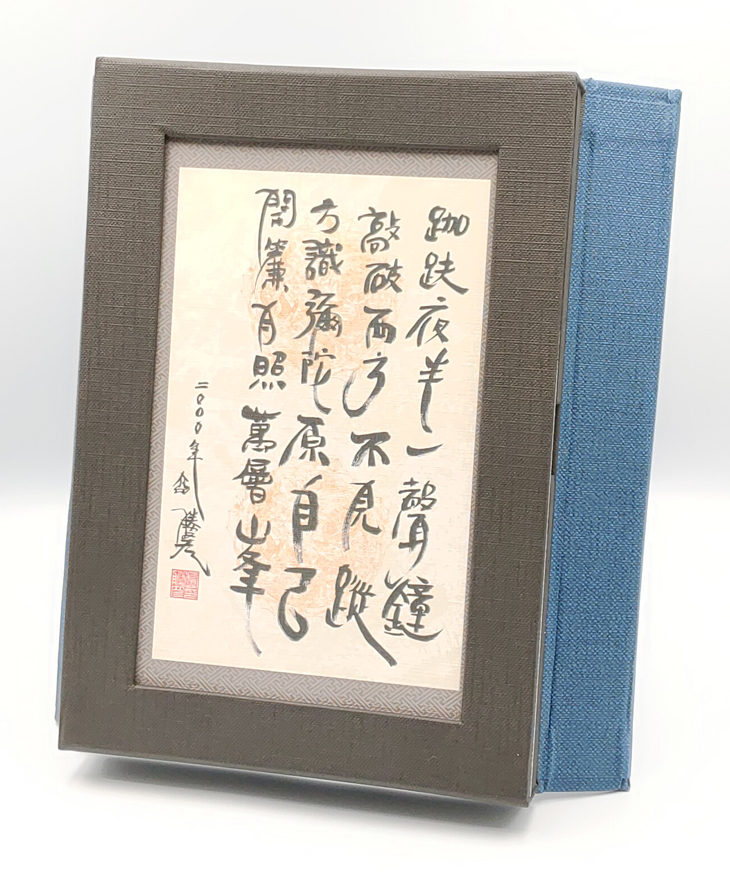 跏趺夜半一聲鐘
敲破西方不見蹤
方識彌陀原自己
開簾月照萬層山峯
二〇〇〇年